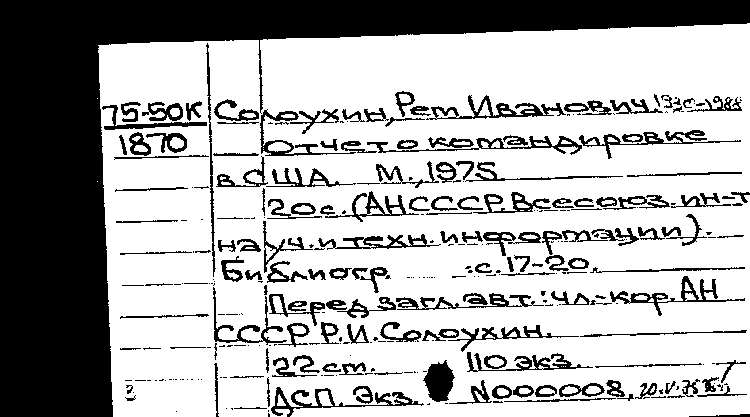 75-50К Солоухин, Рем Иванович. 1930-1988
1870 Отчет о командировке
в США. М., 1975
20 с. (АН СССР. Всесоюз. ин-т
науч. и техн. информации).
Библиогр. :с. 17-20.
Перед загл. авт.: чл.-кор. АН
СССР Р.И. Солоухин.
22 см. 110 экз.
3 ДСП. Экз. N000008. 20.V.75